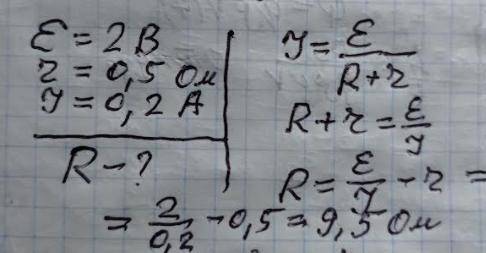 ε = 2 В
r = 0,5 Ом
I = 0,2 А
R - ?
I = ε / (R + r)
R + r = ε / I
R = ε / I - r =
= 2 / 0,2 - 0,5 = 9,5 Ом